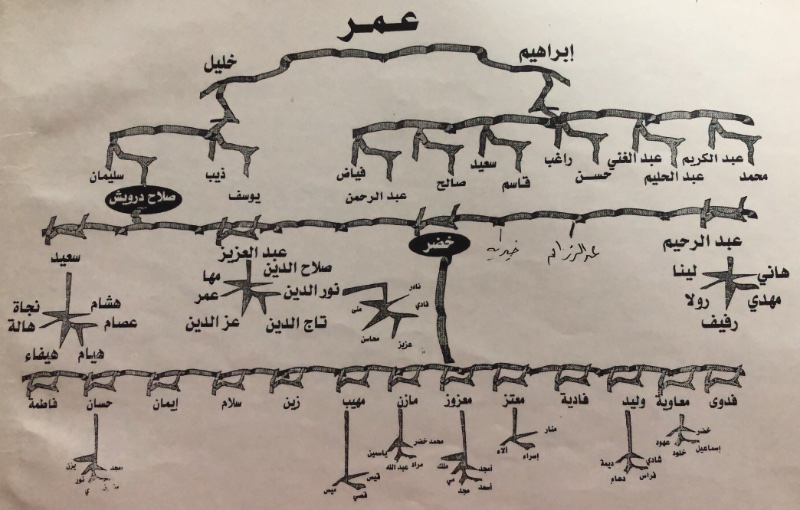 عمر
إبراهيم
خليل
محمد عبد الكريم عبد الحليم عبد الغني حسن راغب قاسم سعيد صالح عبد الرحمن فياض
يوسف ذيب سليمان
صلاح درويش
عبد الرحيم
خيريه
خضر
عبد العزيز
سعيد
هاني مهدي رفيف رولا لينا
نادر فادي عزيز محاسن علي
صلاح الدين نور الدين تاج الدين عز الدين عمر مها
هشام عصام هيام هيفاء هالة نجاة
فدوى معاوية وليد فادية معتز معزوز مازن مهيب زين سلام إيمان حسان فاطمة
خضر إسماعيل خلود عهود
شادي فراس دهاء ديمة
منار إسراء آلاء
أمجد أسعد مجد مي ملك
محمد خضر مراد عبد الله ياسين
قيس قصي ميس
امجد نور يزن